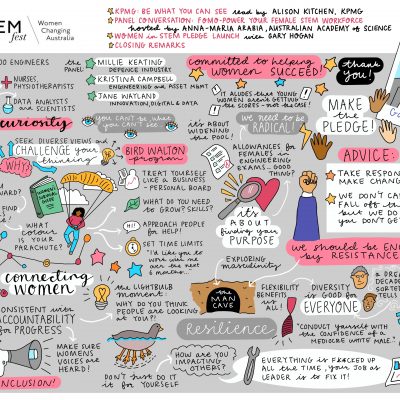 EM
fest
Women
Changing
Australia
★ KPMG: BE WHAT YOU CAN SEE read by ALISON KITCHEN, KPMG
★ PANEL CONVERSATION: FOMO-POWER YOUR FEMALE STEM WORKFORCE
hosted by ANNA-MARIA ARABIA, AUSTRALIAN ACADEMY OF SCIENCE
★ WOMEN in STEM PLEDGE LAUNCH with GARY HOGAN
★ CLOSING REMARKS
OO ENGINEERS
NURSES,
PHYSIOTHERAPISTS
DATA ANALYSTS
AND SCIENTISTS
the
PANEL
MILLIE KEATING
DEFENCE INDUSTRY
KRISTINA CAMPBELL
ENGINEERING and ASSET MGMT
JANE WATLAND
INNOVATION, DIGITAL & DATA
committed to helping
women SUCCEED!
thank
you!
curiosity
you can't be what
you can't SEE
SEEK DIVERSE VIEWS and
CHALLENGE your
thinking
WHY?
BIRD WALTON
program
it's about
WIDENING
the POOL!
IT ALIGNS THAT YOUNG
WOMEN AREN'T GETTING
THE SCORES - NOT THE
we need to be
RADICAL!
ALLOWANCES for
FEMALES in
ENGINEERING
EXAMS... GOOD
THING?
MAKE
THE
PLEDGE!
ADVICE:
TAKE RESPO
MAKE CHANG
WE DON'T CA
FALL off the
but WE DO
YOU DON'T GE
TREAT YOURSELF
LIKE a BUSINESS
- PERSONAL BOARD
WHAT DO YOU NEED
to GROW? SKILLS?
HI!
APPROACH PEOPLE
for HELP!
SET TIME LIMITS
"I'd like you to
work with me
over the next
6 months."
WHAT
COLOUR IS
YOUR PARACHUTE?
it's
ABOUT
finding your
PURPOSE
EXPLORING
masculinity
the
MAN
CAVE
we should be EN
by RESISTANCE
connecting
WOMEN
CONSISTENT with
ACCOUNTABILITY
for PROGRESS
MAKE SURE
WOMENS
VOICES are
HEARD!
INCLUSION!
the LIGHTBULB
moment:
WHY DO YOU THINK
PEOPLE are LOOKING
at YOU?!
DON'T JUST DO
IT for YOURSELF
Resilience
HOW are YOU
IMPACTING
OTHERS?
FLEXIBILITY
BENEFITS
us ALL!
DIVERSITY
is GOOD for
EVERYONE
"CONDUCT YOURSELF with
the CONFIDENCE of a
MEDIOCRE WHITE MALE."
EVERYTHING IS F*CKED UP
ALL the TIME, YOUR JOB as
LEADER is to FIX IT!